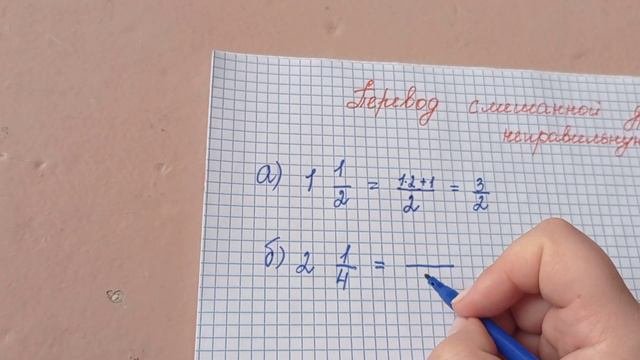 Перевод смешанной
неправильную
а) 1 1/2 = 1·2+1/2 = 3/2
б) 2 1/4 =